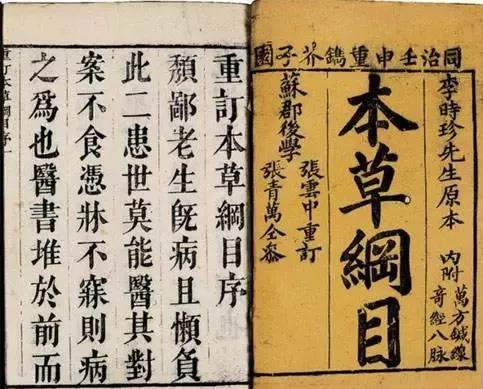 同治壬申重鐫芥子園
李時珍先生原本
內附
萬方鍼線
奇經八脈
本草綱目
張雲中重訂
蘇郡後學
張青萬仝參
重訂本草綱目序
頽鄙老生旣病且懶負
此二患世莫能醫其對
案不食憑牀不寐則病
之爲也醫書堆於前而